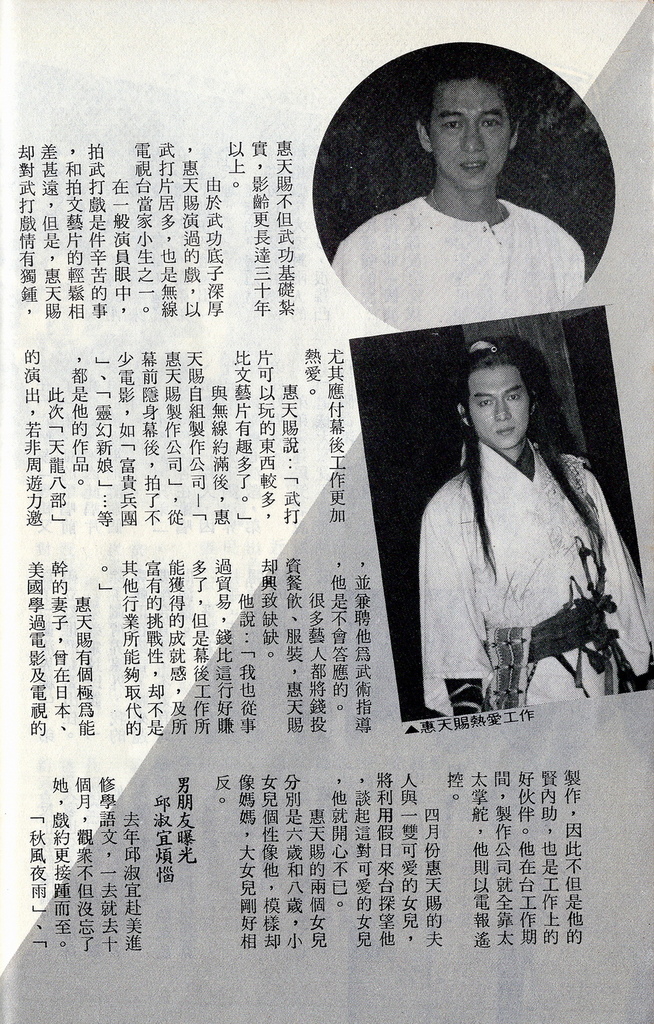 惠天賜不但武功基礎紮
實，影齡更長達三十年
以上。
由於武功底子深厚
，惠天賜演過的戲，以
武打片居多，也是無線
電視台當家小生之一。
在一般演員眼中，
拍武打戲是件辛苦的事
，和拍文藝片的輕鬆相
差甚遠，但是，惠天賜
却對武打戲情有獨鍾，
尤其應付幕後工作更加
熱愛。
惠天賜說：「武打
片可以玩的東西較多，
比文藝片有趣多了。」
與無線約滿後，惠
天賜自組製作公司—「
惠天賜製作公司」，從
幕前隱身幕後，拍了不
少電影，如「富貴兵團
」、「靈幻新娘」…等
，都是他的作品。
此次「天龍八部」
的演出，若非周遊力邀
，並兼聘他爲武術指導
，他是不會答應的。
很多藝人都將錢投
資餐飲、服裝，惠天賜
却興致缺缺。
他說：「我也從事
過貿易，錢比這行好賺
多了，但是幕後工作所
能獲得的成就感，及所
富有的挑戰性，却不是
其他行業所能夠取代的
。」
惠天賜有個極爲能
幹的妻子，曾在日本、
美國學過電影及電視的
▲惠天賜熱愛工作
製作，因此不但是他的
賢內助，也是工作上的
好伙伴。他在台工作期
間，製作公司就全靠太
太掌舵，他則以電報遙
控。
四月份惠天賜的夫
人與一雙可愛的女兒，
將利用假日來台探望他
，談起這對可愛的女兒
，他就開心不已。
惠天賜的兩個女兒
分別是六歲和八歲，小
女兒個性像他，模樣却
像媽媽，大女兒剛好相
反。
男朋友曝光
邱淑宜煩惱
去年邱淑宜赴美進
修學語文，一去就去十
個月，觀衆不但沒忘了
她，戲約更接踵而至。
「秋風夜雨」、「